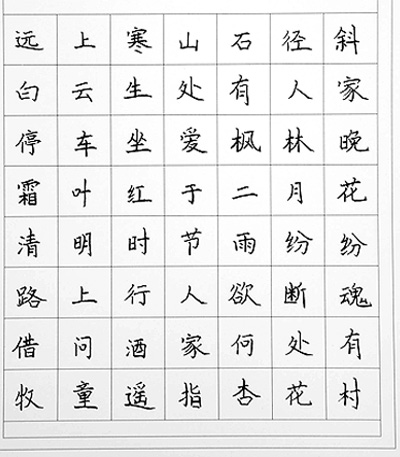 远上寒山石径斜
白云生处有人家
停车坐爱枫林晚
霜叶红于二月花
清明时节雨纷纷
路上行人欲断魂
借问酒家何处有
牧童遥指杏花村